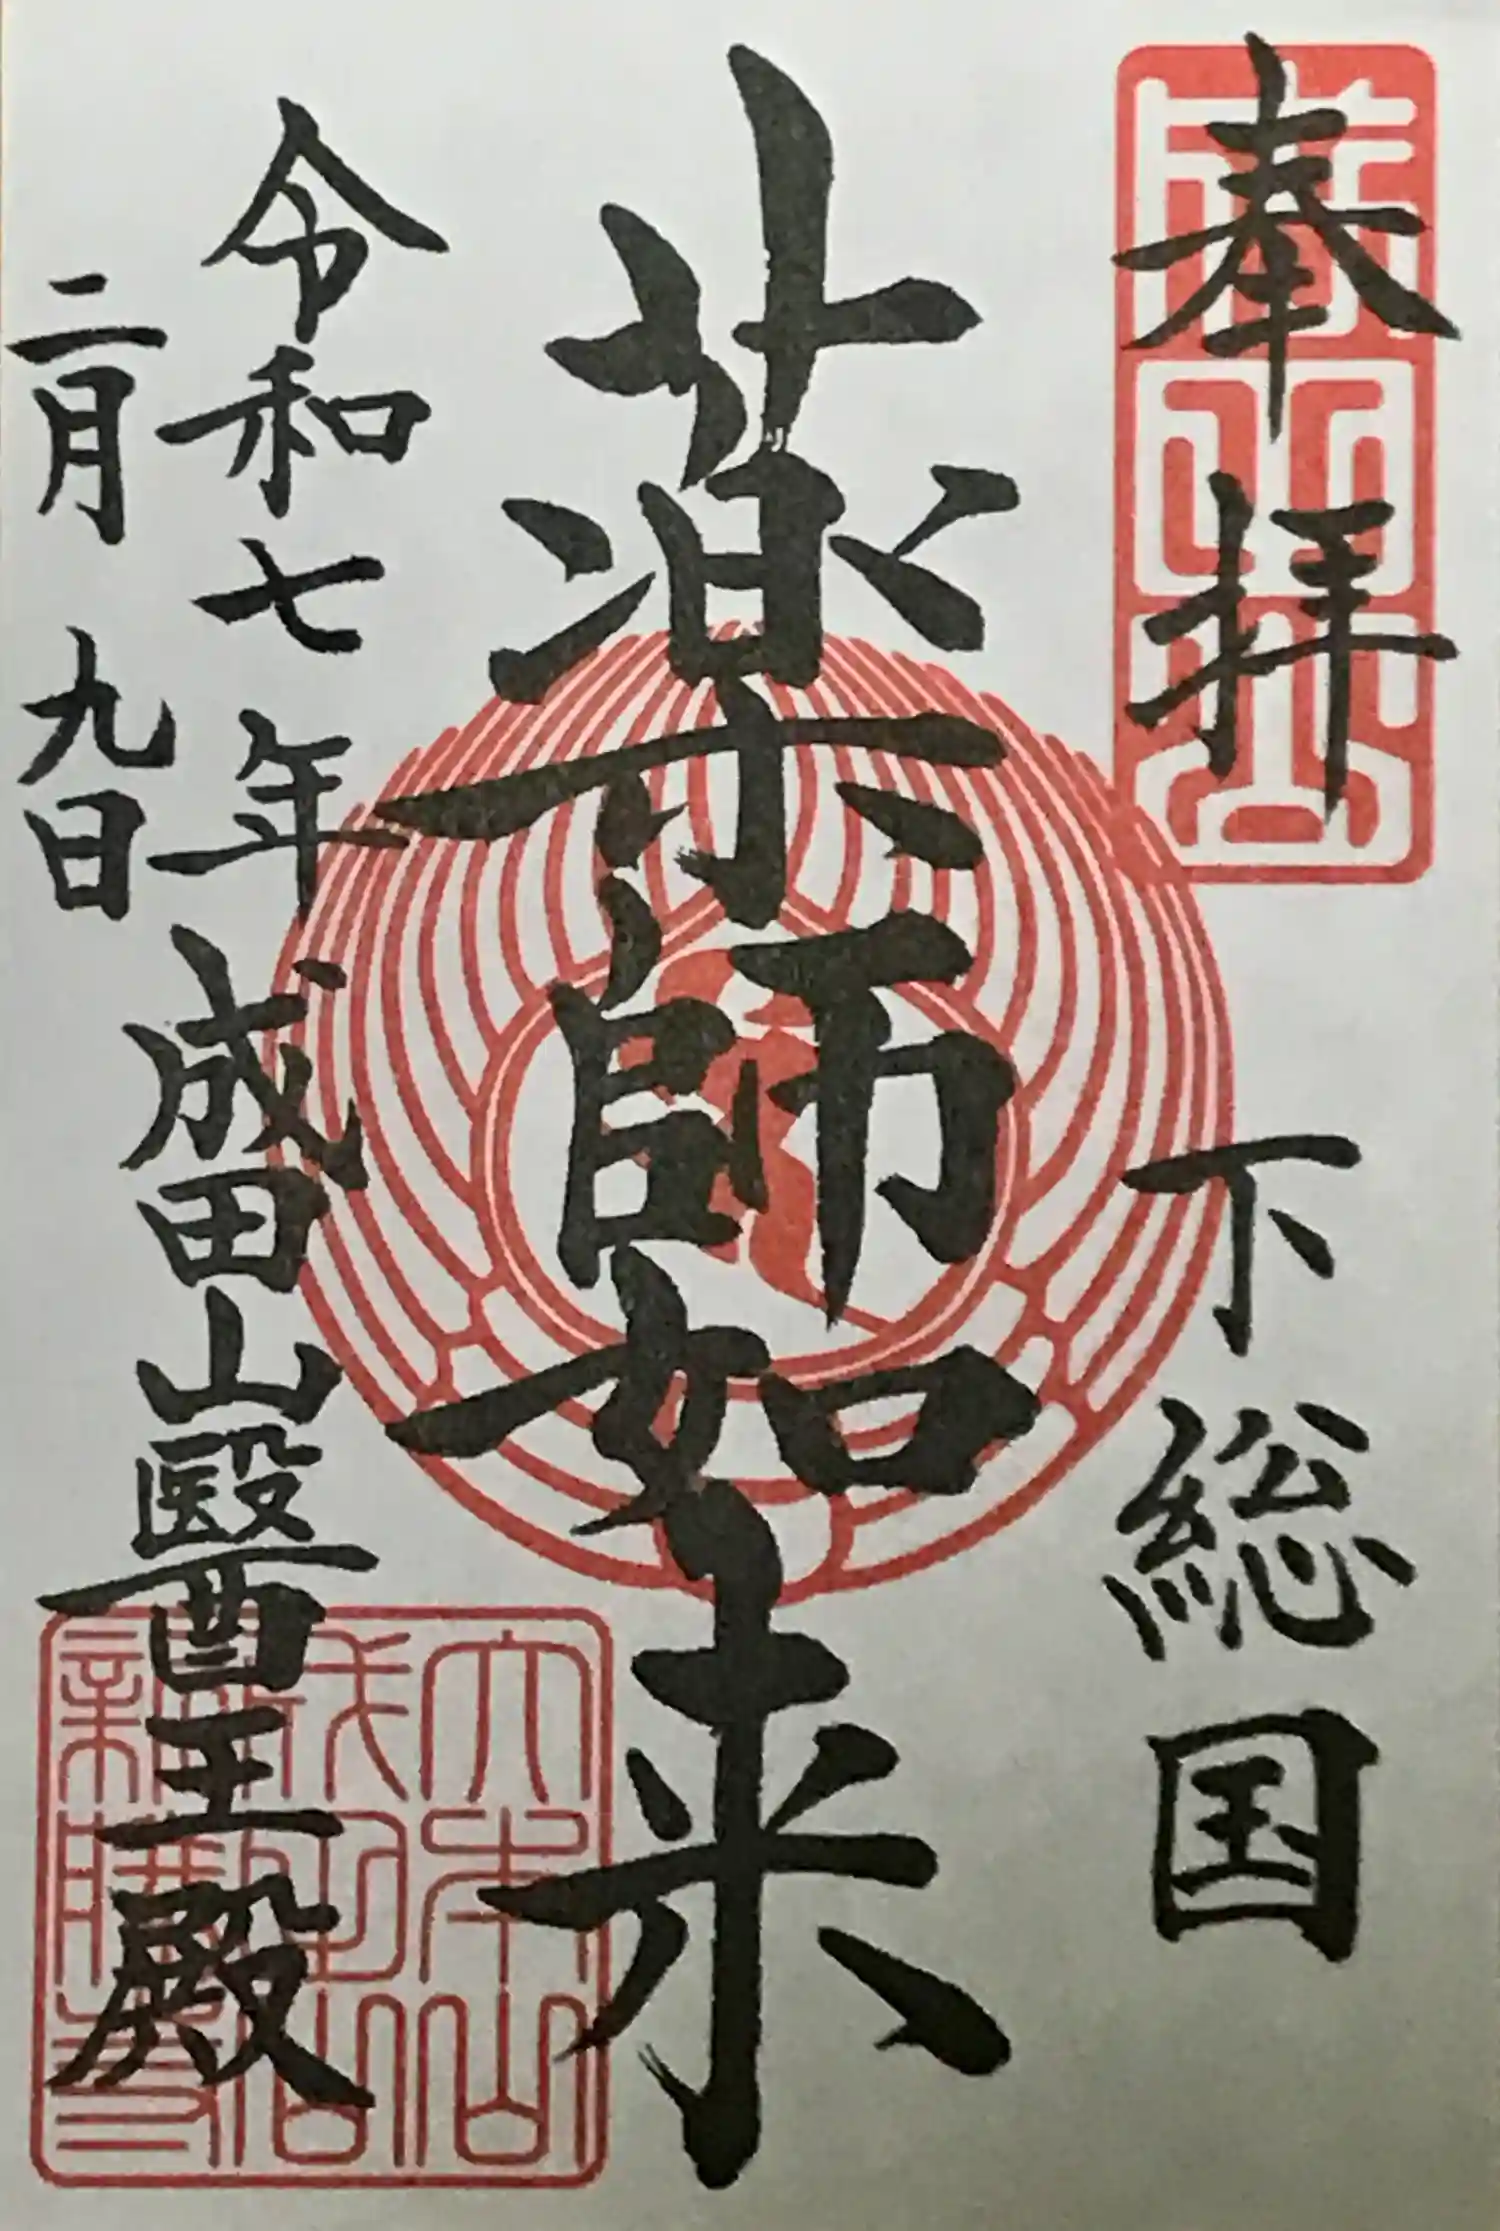 奉拝
下総国
薬師如来
令和七年
二月九日
成田山醫王殿